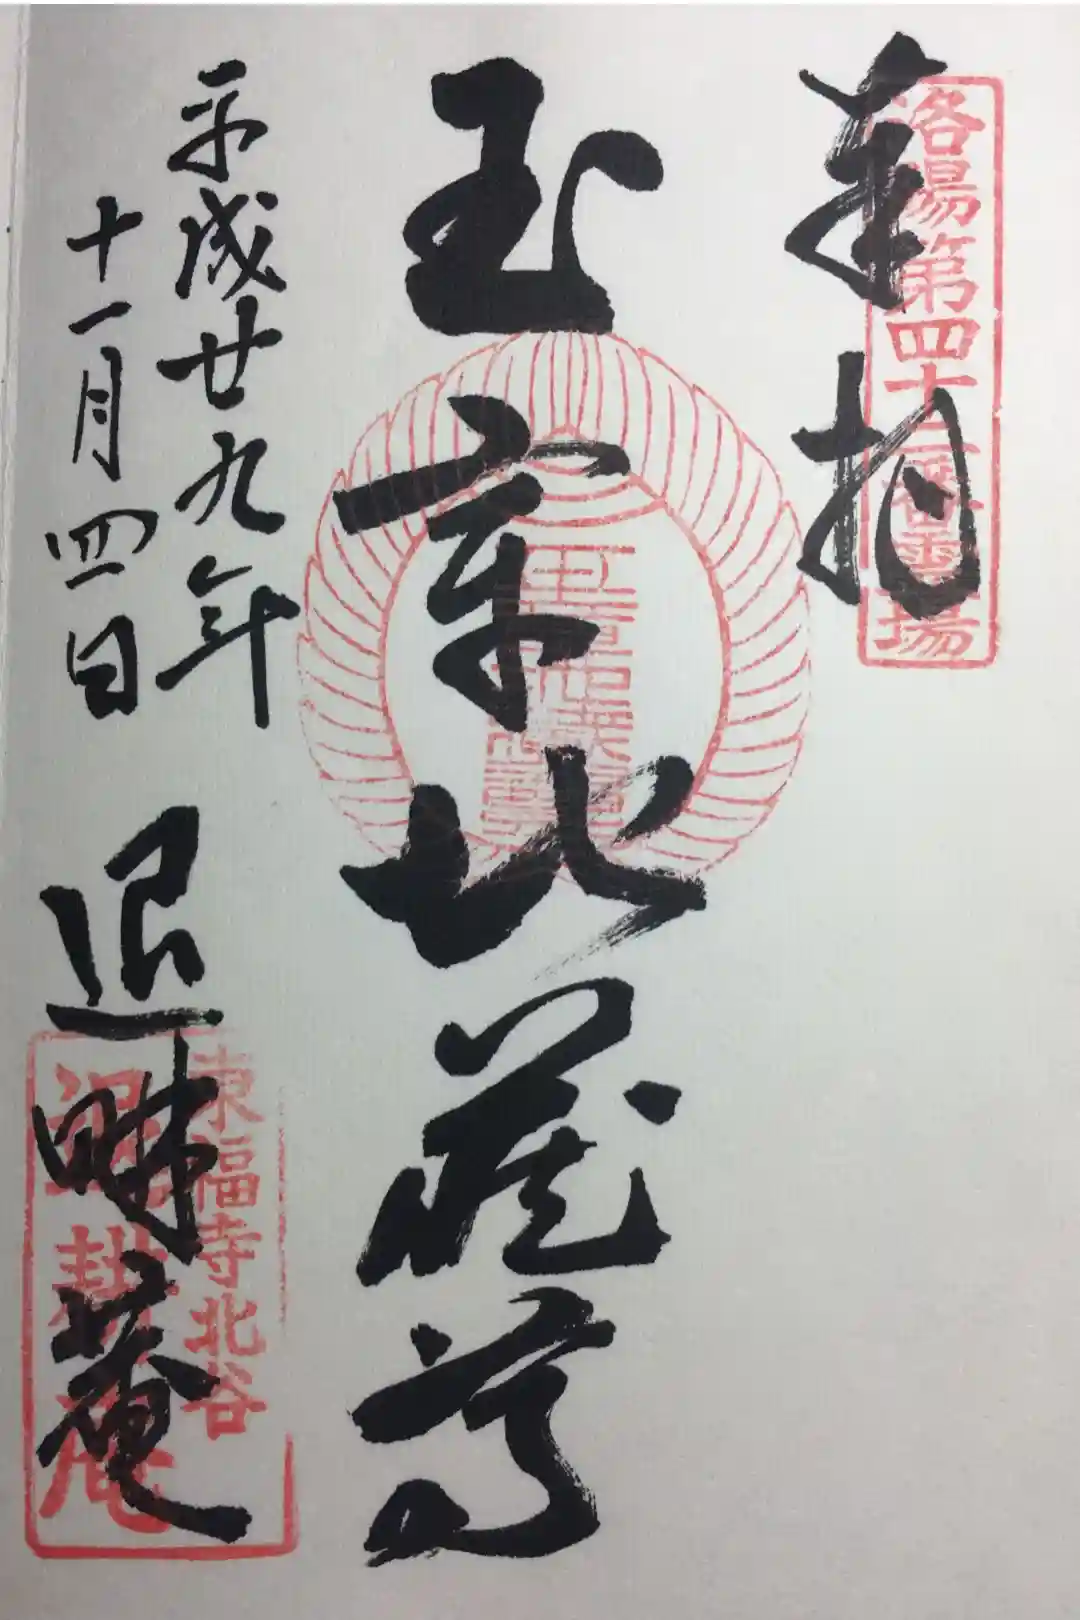 奉拝
洛陽第四十二番霊場
玉章地蔵尊
平成廿九年
十一月四日
退耕庵
東福寺北谷
退耕庵